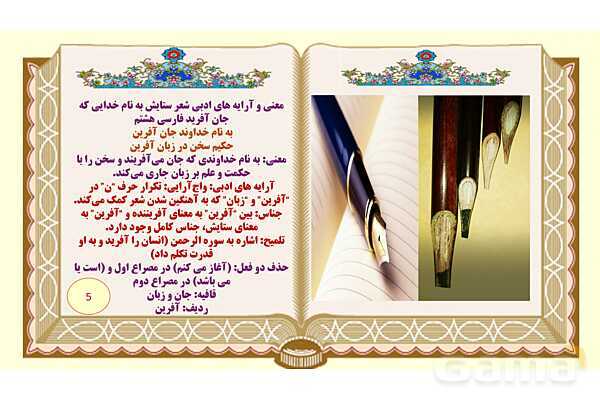 معنی و آرایه های ادبی شعر ستایش به نام خدایی که
جان آفرید فارسی هشتم
به نام خداوند جان آفرین
حکیم سخن در زبان آفرین
معنی: به نام خداوندی که جان می‌آفریند و سخن را با
حکمت و علم بر زبان جاری می‌کند.
آرایه های ادبی: واج‌آرایی: تکرار حرف "ن" در
"آفرین" و "زبان" که به آهنگین شدن شعر کمک می‌کند.
جناس: بین "آفرین" به معنای آفریننده و "آفرین" به
معنای ستایش، جناس کامل وجود دارد.
تلمیح: اشاره به سوره الرحمن (انسان را آفرید و به او
قدرت تکلم داد)
حذف دو فعل: (آغاز می کنم) در مصراع اول و (است یا
می باشد) در مصراع دوم
قافیه: جان و زبان
ردیف: آفرین
5
Gama